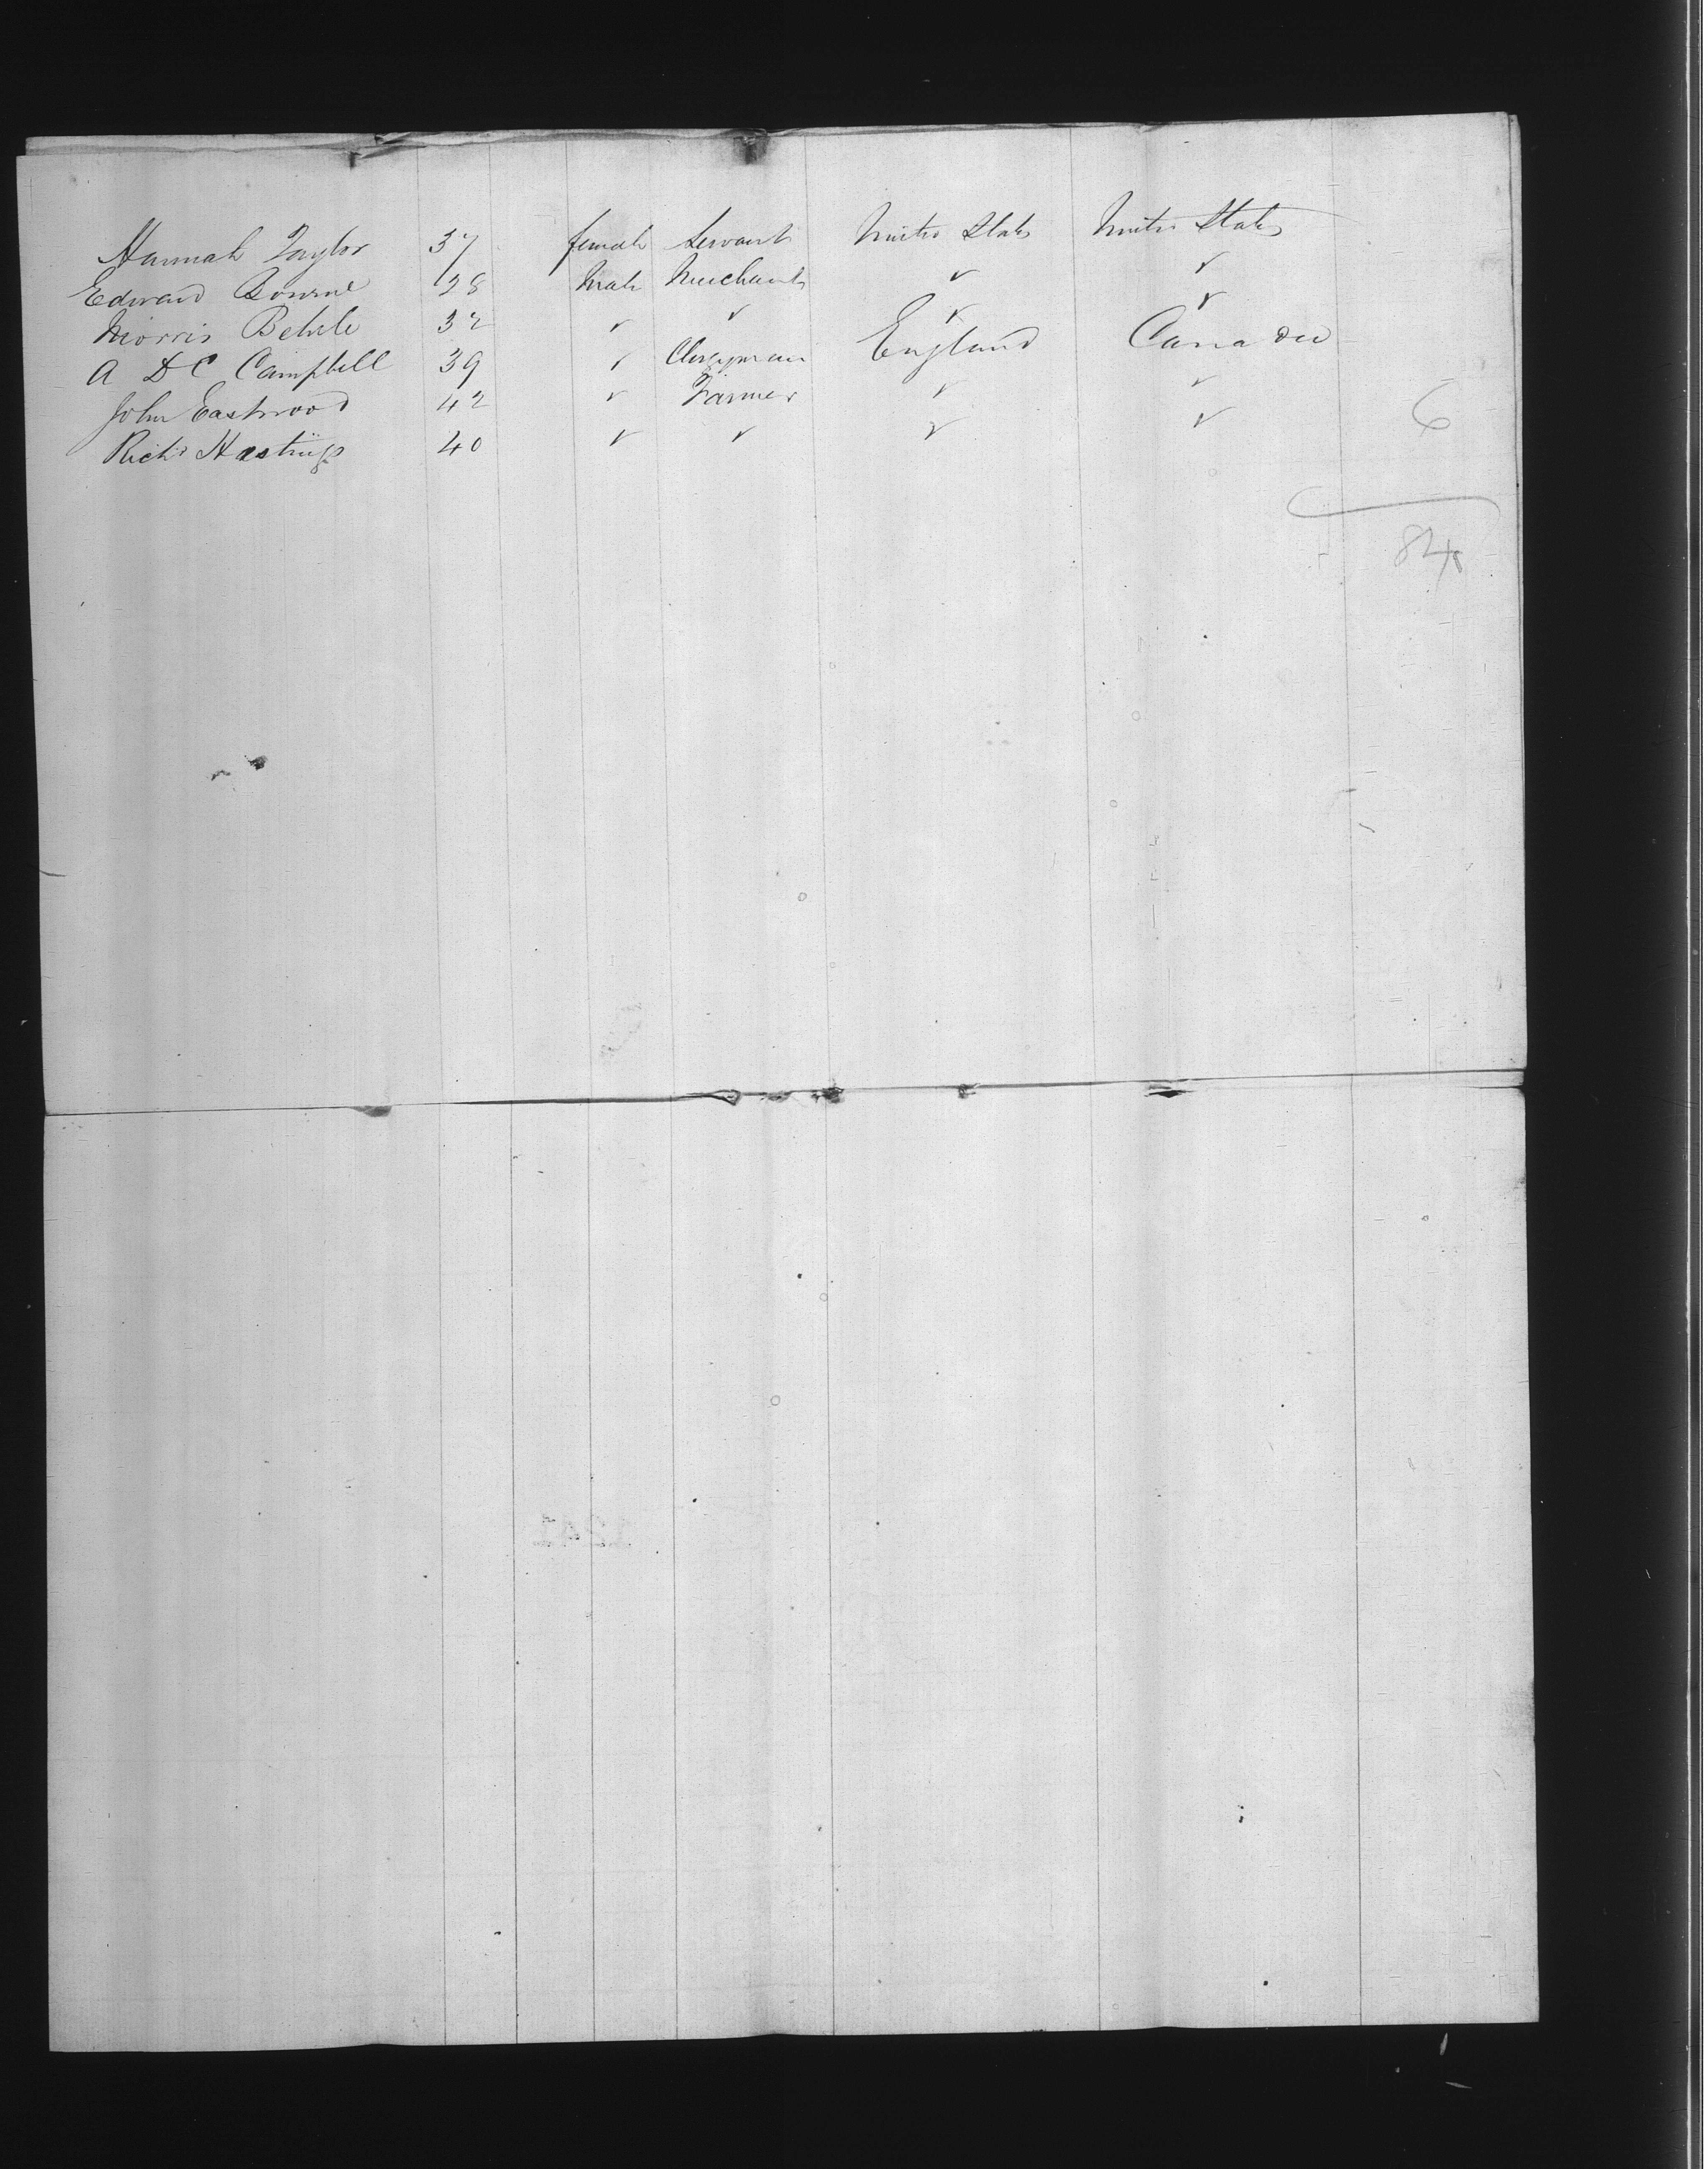 Hannah Taylor 37 female Servant United States United States
Edward Bourne 28 Male Merchant ✓ ✓
Morris 32 ✓ ✓ ✓ ✓
A D C Campbell 39 ✓ Clergyman England Canada
John Eastwood 42 ✓ Farmer ✓ ✓
Richd Hastings 40 ✓ ✓ ✓ ✓
6
84